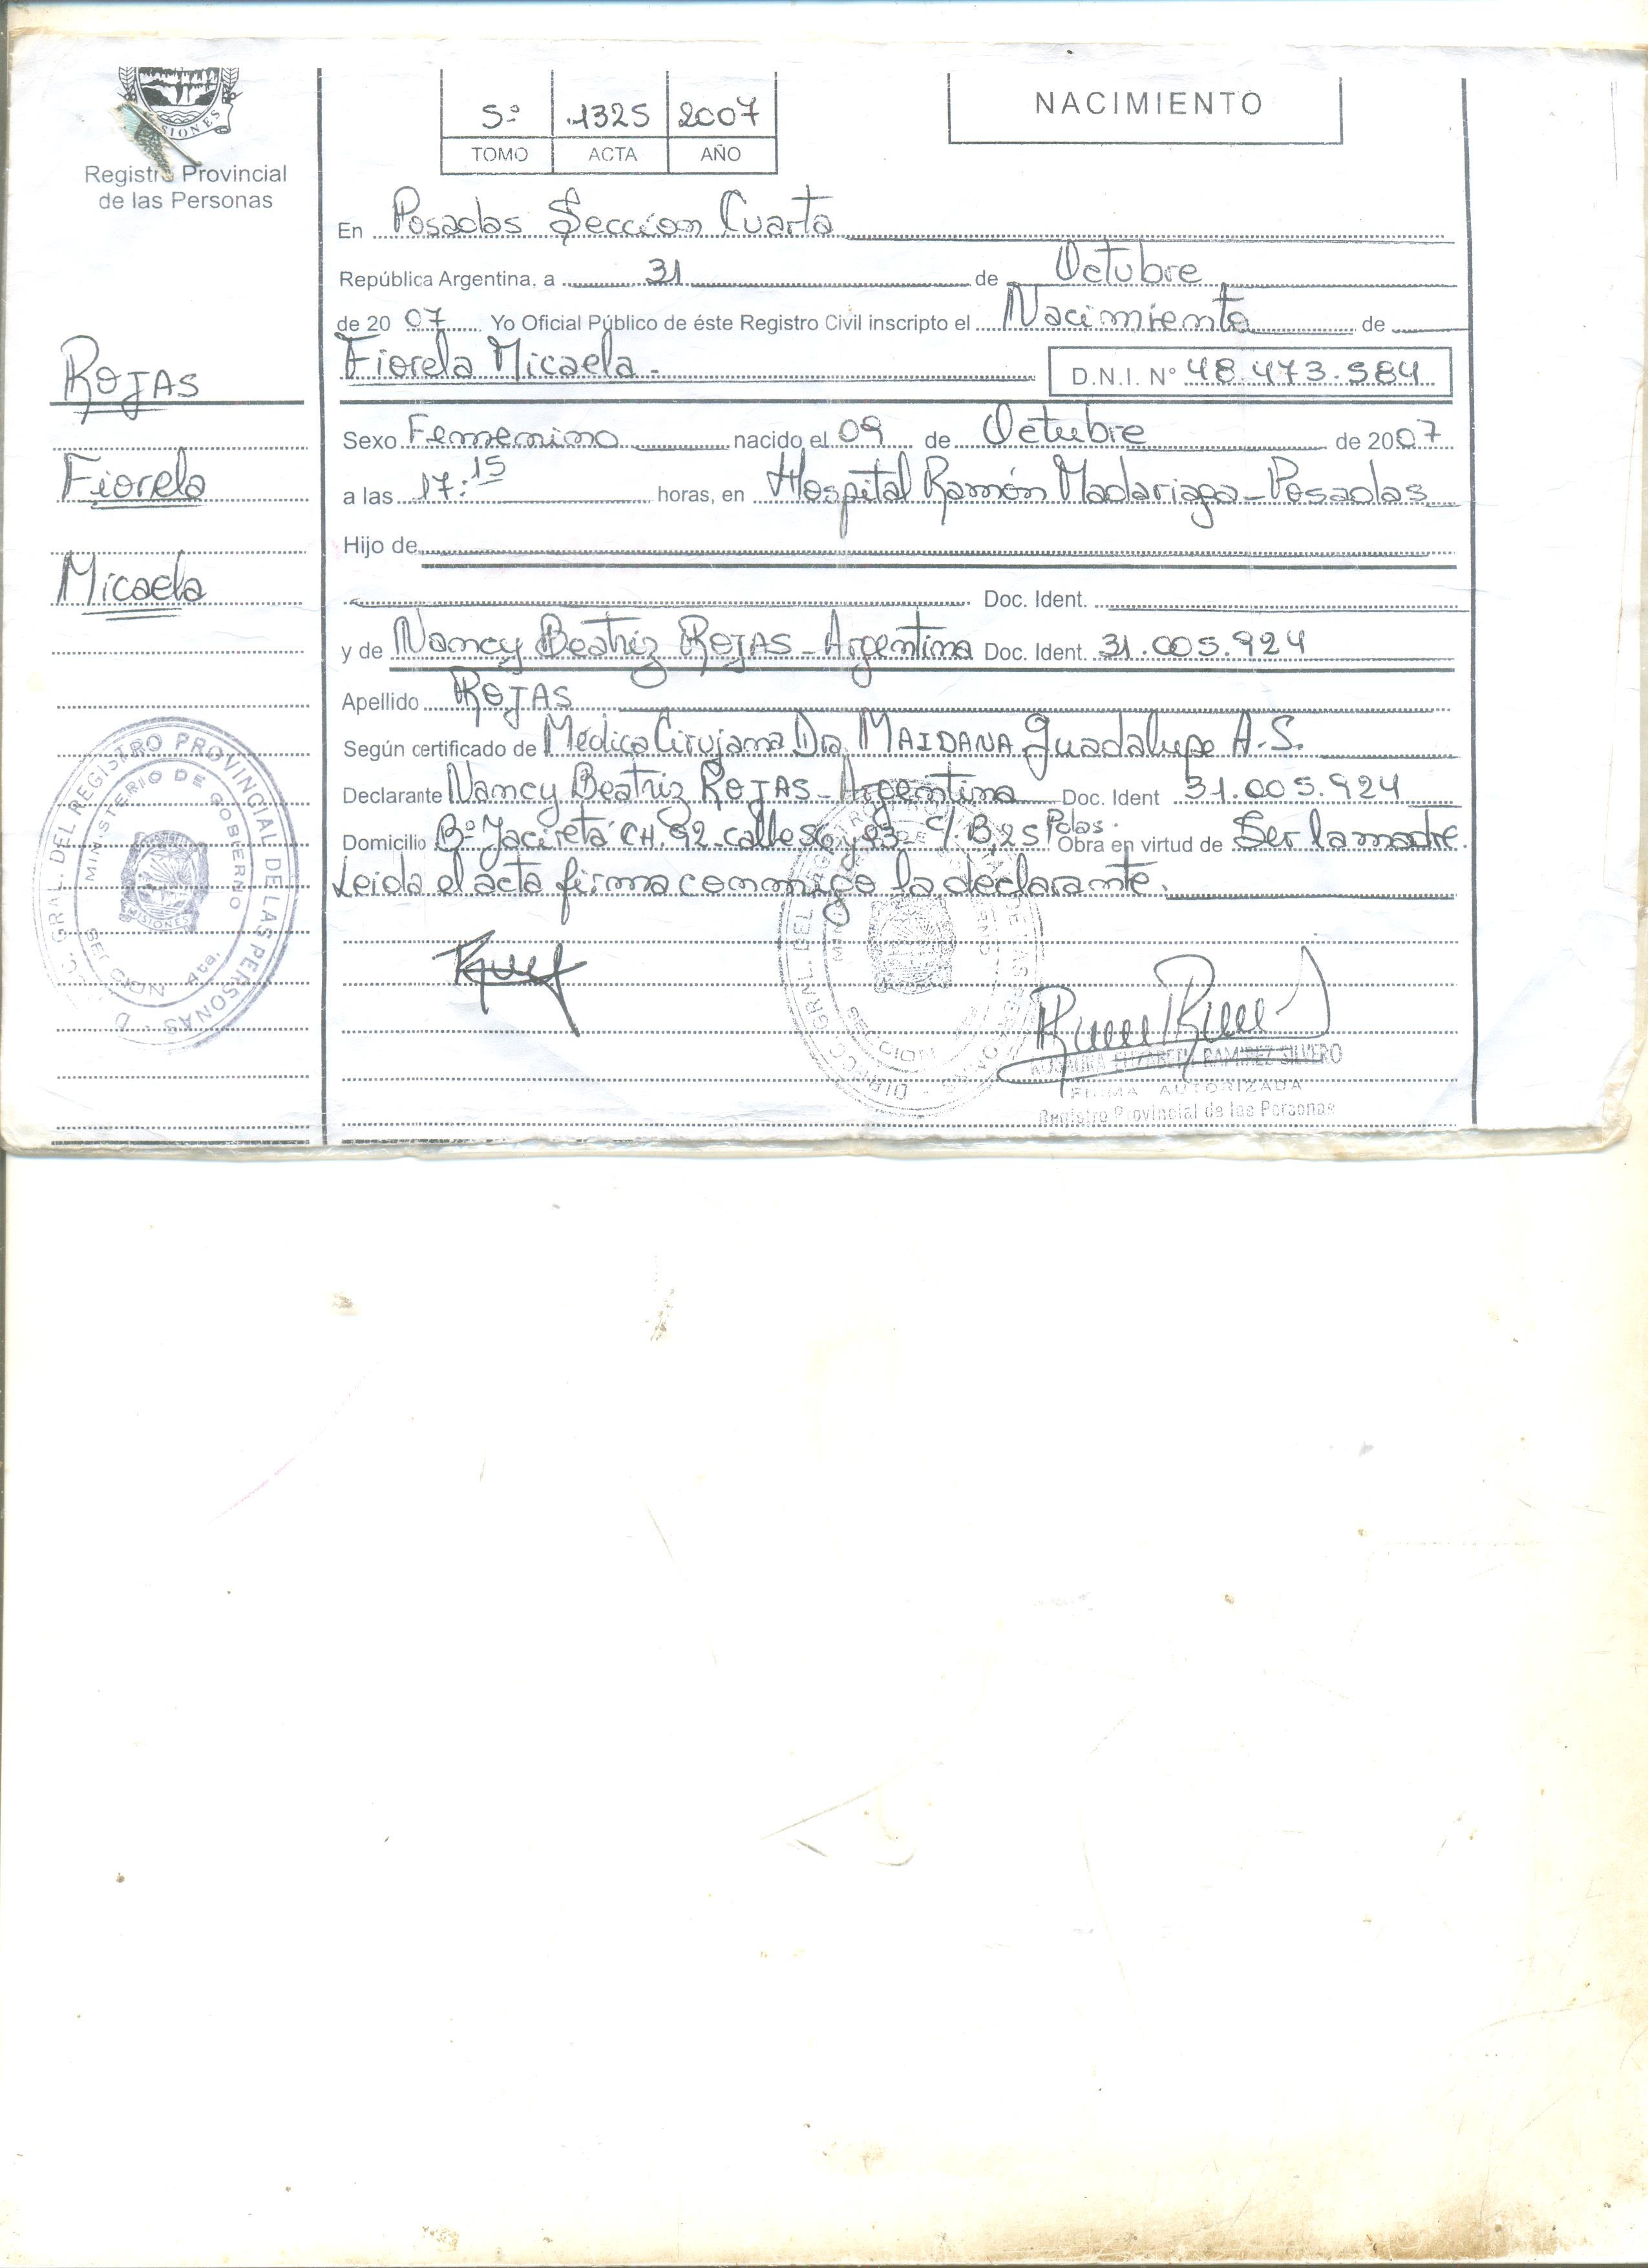 MISIONES
Registro Provincial
de las Personas
ROJAS
Fiorela
Micaela
5º 1325 2007
TOMO ACTA AÑO
NACIMIENTO
En Posadas Sección Cuarta
República Argentina, a 31 de Octubre
de 20 07 Yo Oficial Público de éste Registro Civil inscripto el Nacimiento de
Fiorela Micaela.- D.N.I. Nº 48.473.584
Sexo Femenino nacido el 09 de Octubre de 2007
a las 17:15 horas, en Hospital Ramón Madariaga - Posadas
Hijo de
Doc. Ident.
y de Nancy Beatriz ROJAS - Argentina Doc. Ident. 31.005.924
Apellido ROJAS
Según certificado de Médica Cirujana Dra. MAIDANA Guadalupe A.S.
Declarante Nancy Beatriz ROJAS - Argentina Doc. Ident 31.005.924
Domicilio Bº Jacireta CH. 92 - calle 56 y 83 - C/. B, 25 Pdas. Obra en virtud de Ser la madre.
Leída el acta firma conmigo la declarante.
DIRECC. GRAL. DEL REGISTRO PROVINCIAL DE LAS PERSONAS
MINISTERIO DE GOBIERNO
MISIONES
SECCION 4ta.
RAMIREZ SILVERO
FIRMA AUTORIZADA
Registro Provincial de las Personas